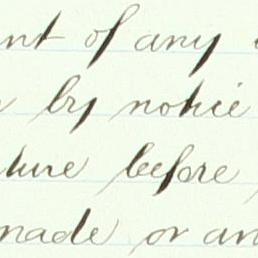 nt of any
by notice
ture before
made or an